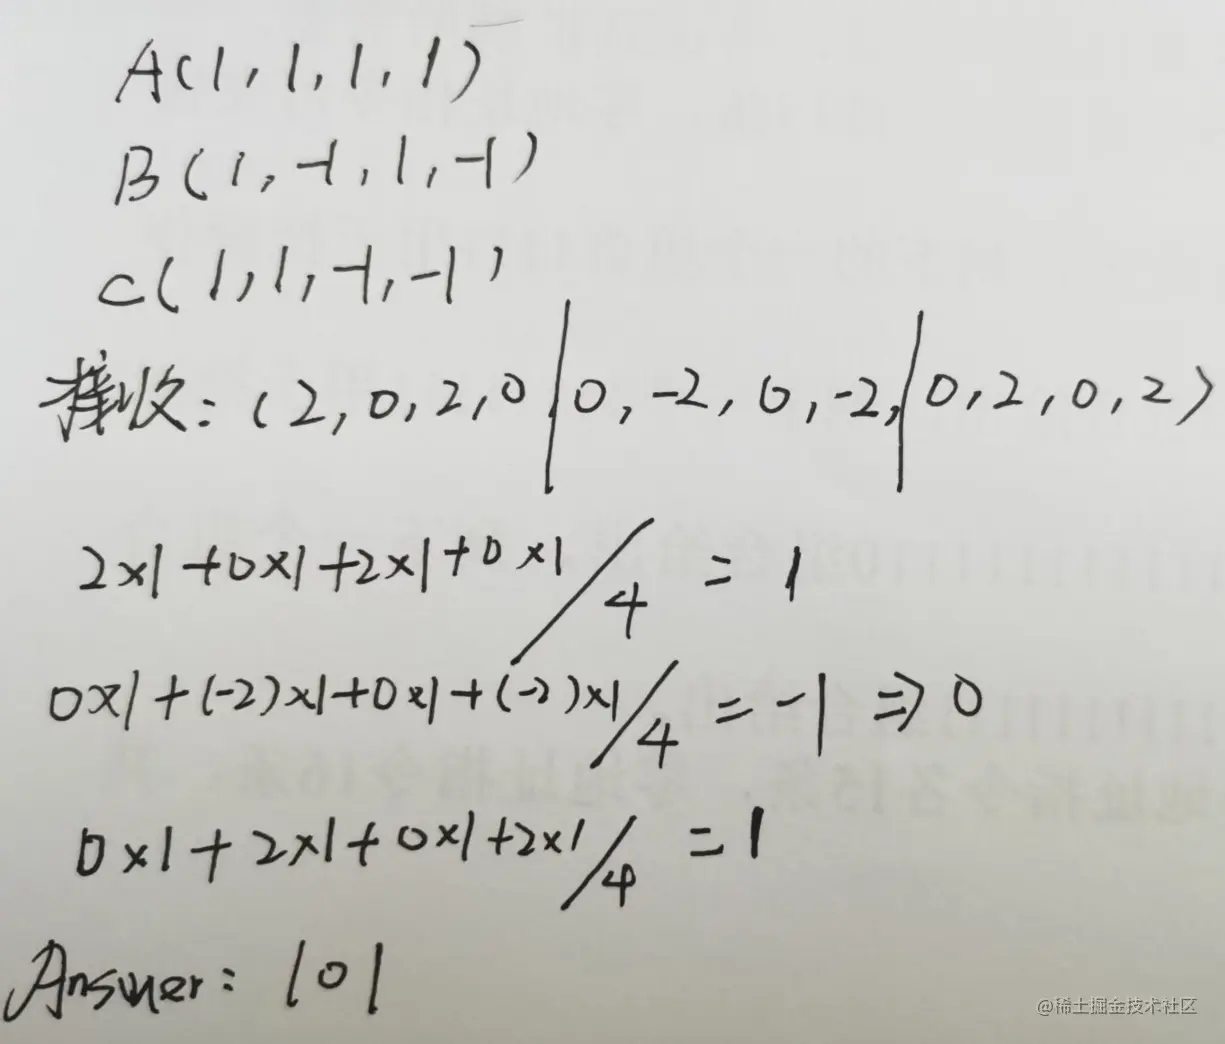 A(1,1,1,1)
B(1,-1,1,-1)
C(1,1,-1,-1)
接收:(2,0,2,0|0,-2,0,-2,|0,2,0,2)
2×1+0×1+2×1+0×1/4=1
0×1+(-2)×1+0×1+(-2)×1/4=-1⇒0
0×1+2×1+0×1+2×1/4=1
Answer: 101
@稀土掘金技术社区